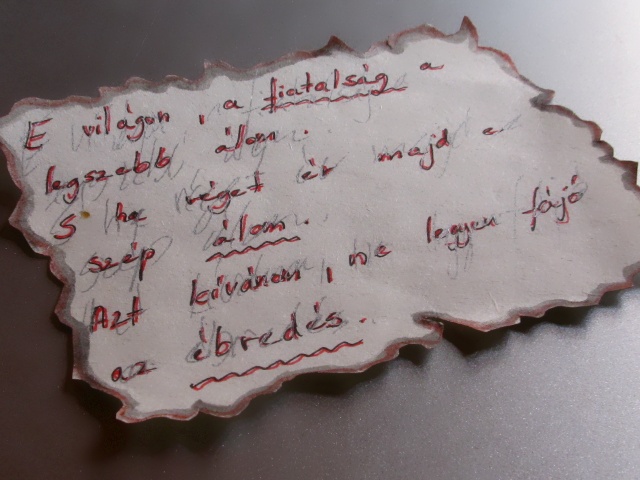 E világon, a fiatalság a
legszebb álom.
S ha véget ér majd e
szép álom.
Azt kívánom, ne legyen fájó
az ébredés.